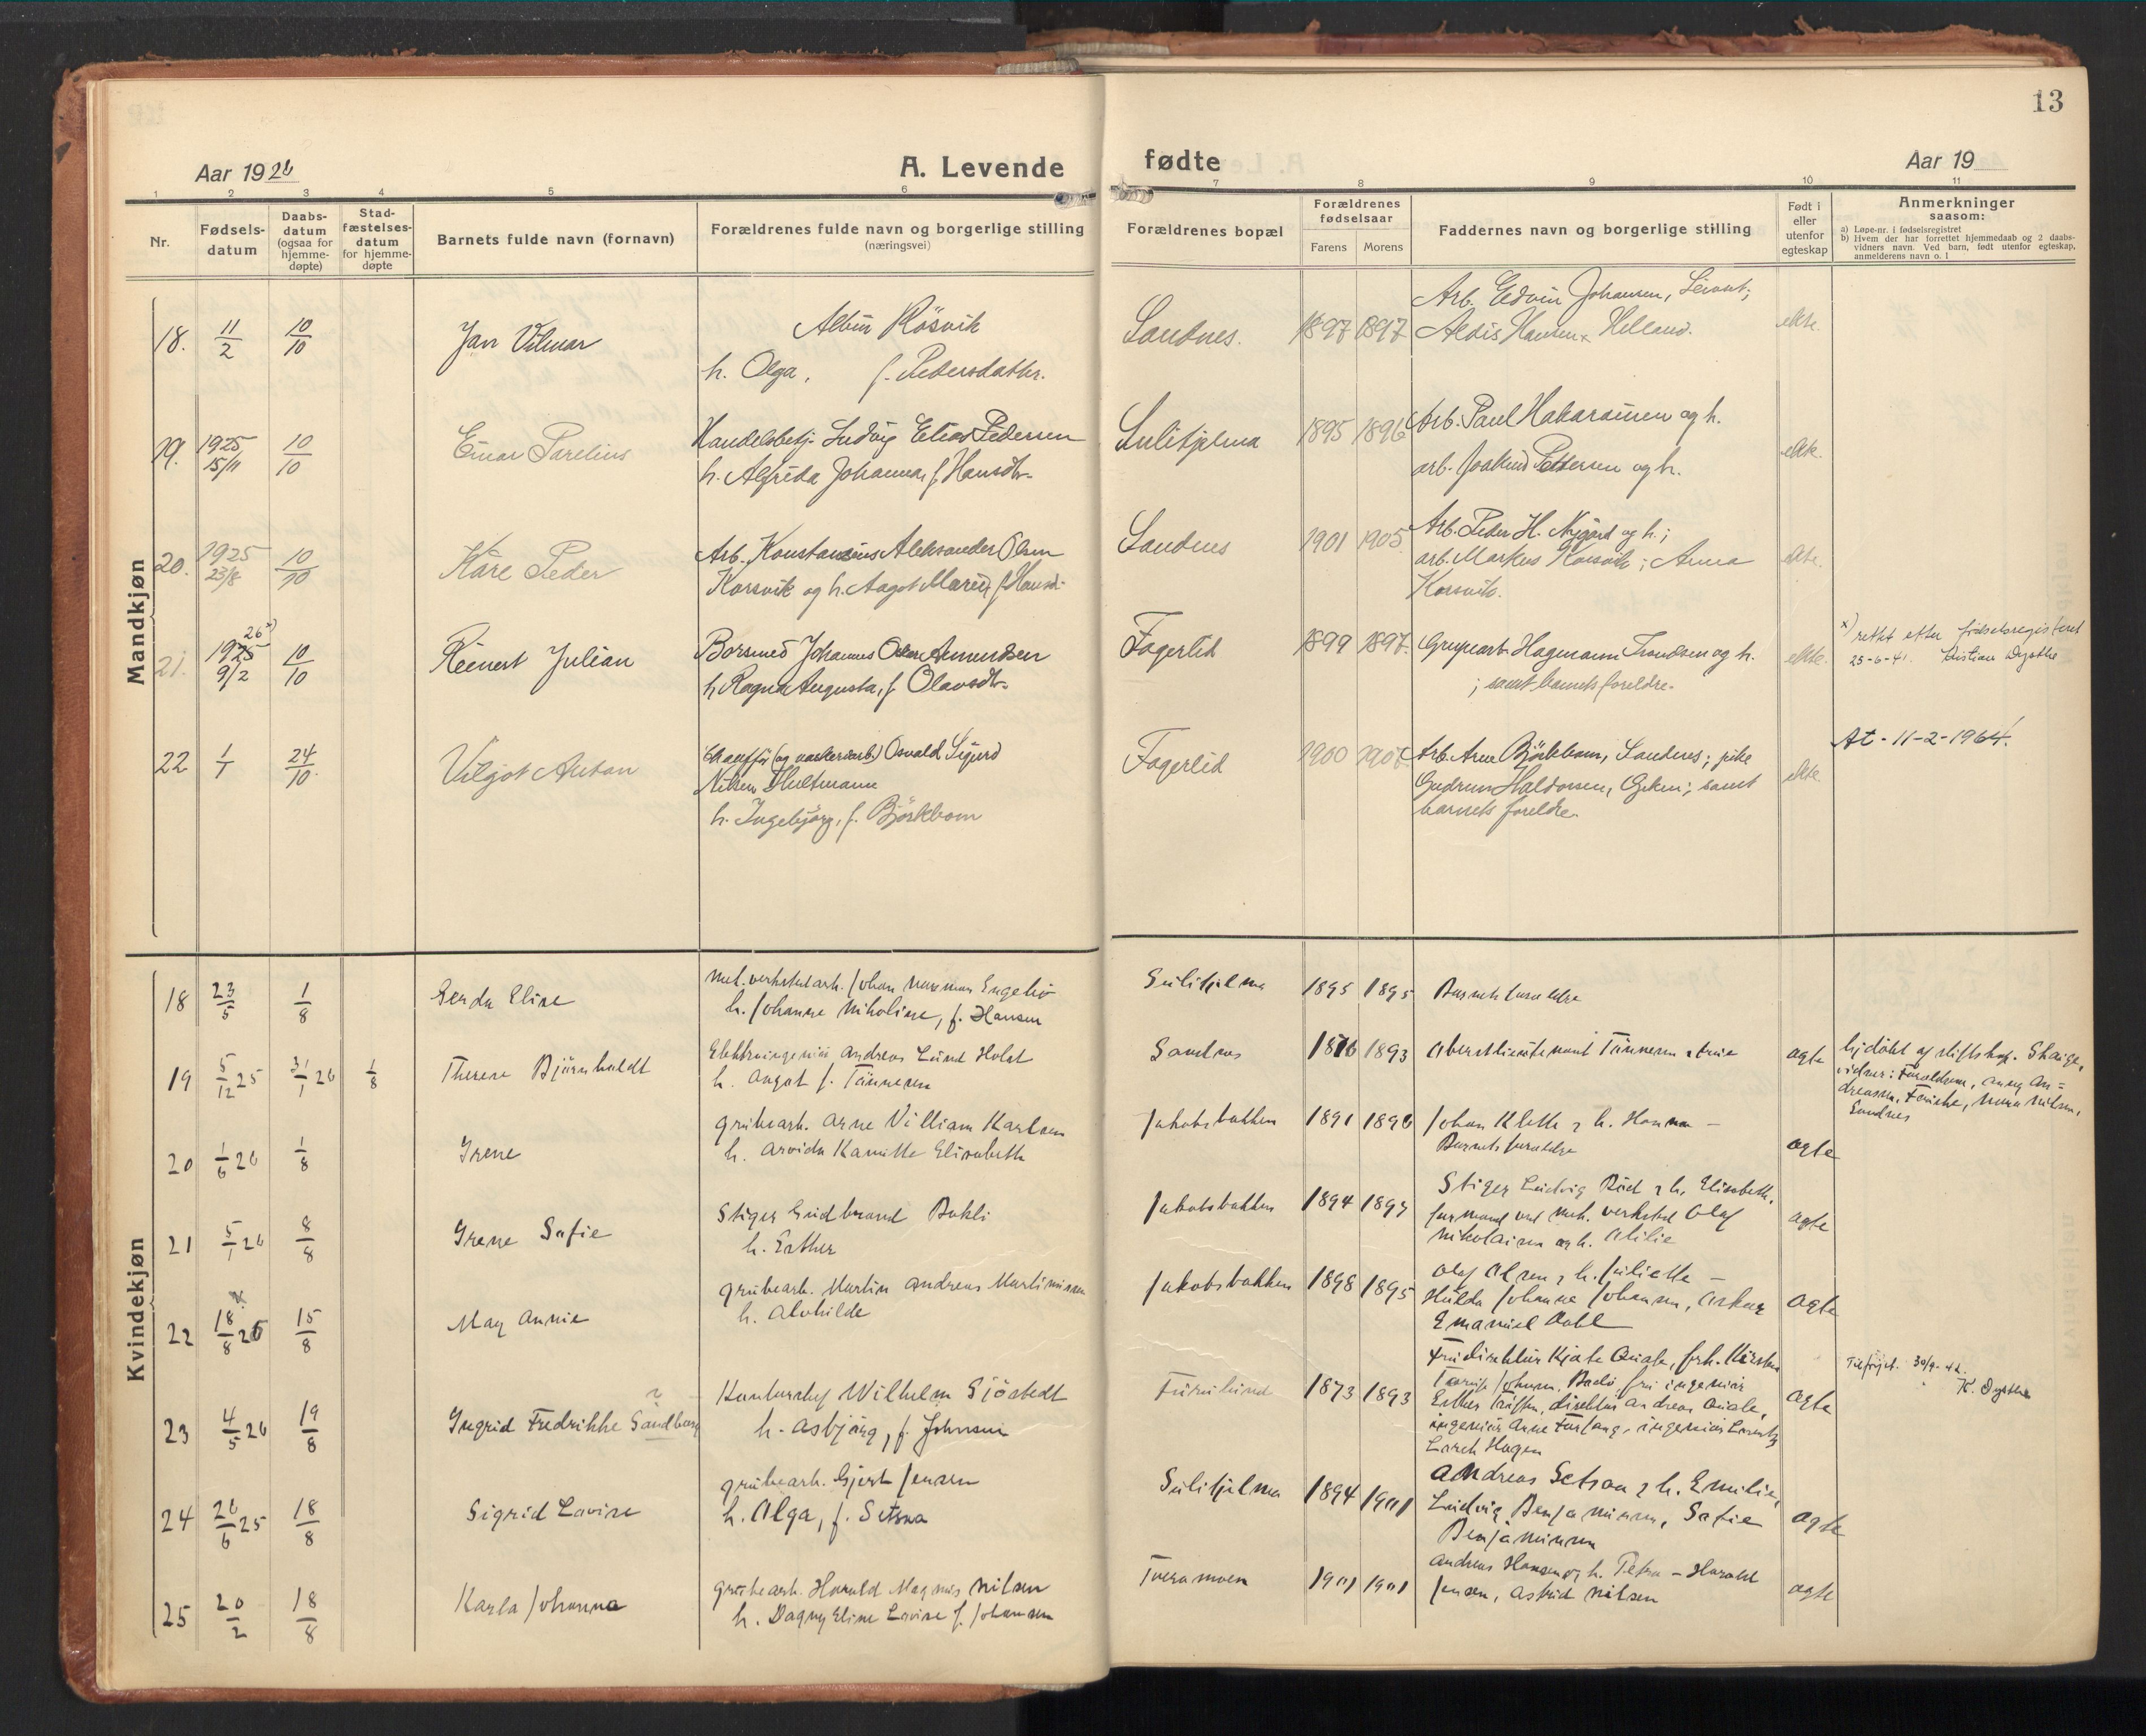 13
Aar 1926
A. Levende
fødte
Aar 19
1 2 3 4 5 6 7 8 9 10 11
Nr.
Fødsels-
datum
Daabs-
datum
(ogsaa for
hjemme-
døpte)
Stad-
fæstelses-
datum
for hjemme-
døpte
Barnets fulde navn (fornavn)
Forældrenes fulde navn og borgerlige stilling
(næringsvei)
Forældrenes bopæl
Forældrenes
fødselsaar
Farens Morens
Faddernes navn og borgerlige stilling
Født i
eller
utenfor
egteskap
Anmerkninger
saasom:
a) Løpe-nr. i fødselsregistret
b) Hvem der har forrettet hjemmedaab og 2 daabs-
vidners navn. Ved barn, født utenfor egteskap,
anmelderens navn o. l
Mandkjøn
18. 11/2 10/10 Jan Vilmar
Albin Røsvik
h. Olga, f. Pedersdatter.
Sandnes. 1897 1897
Arb. Edvin Johansen,
Aldis Hansen, Helland.
ekte.
19. 1925 15/11 10/10 Einar Parelius
Handelsbetj. Ludvig Elias Pedersen
h. Alfrida Johanna, f. Hansdtr.
Sulitjelma 1895 1896
Arb. Paul Hakarainen og h.
arb. Joakim Pettersen og h.
ekte.
20. 1925 23/8 10/10 Kåre Peder
Arb. Konstansius Aleksander Olsen
Korsvik og h. Aagot Marie, f. Hansd.
Sandnes 1901 1905
Arb. Peder H. Nygård og h.;
arb. Markus Korsvik; Anna
Korsvik.
ekte.
21. 1925 26 x) 9/2 10/10 Reinert Julian
Borsmed Johannes Olsen Amundsen
h. Ragna Augusta, f. Olavsdtr.
Fagerlid 1899 1897.
Grupearb. Hagmann Trondsen og h.
; samt barnets foreldre.
ekte.
x) rettet etter fødselsregisteret
25-6-41. Kristian Dysthe
22 1/1 24/10. Vilgot Anton
Chauffør (og verkstedarb.) Osvald Sigurd
Nilsen Hultmann
h. Ingebjørg, f. Björkbom
Fagerlid 1900 1907
Arb. Arne Björkbom, Sandnes; pike
Gudrun Haldorsen, Gjken; samt
barnets foreldre.
ekte
At - 11-2-1964.
Kvindekjøn
18 23/5 1/8 Gerda Elise
mek. verkstedarb. Johan Norman Engelsø
h. Johanne Nikoline, f. Hansen
Sulitjelma 1895 1895
Barnets forældre
19 5/12 25 31/1 26 1/8 Therese Bjørnholdt
Elektroingeniør Andreas Lund Holst
h. Aagot f. Tønnesen
Sandnes 1876 1893
Oberstløitenant Tønnesen & frue
ægte
hj.døbt af stiftskap. Skaige,
vidner: Forældrene, Anny An=
dreassen, Nora Nilsen,
Sandnes
20 1/6 26 1/8 Irene
grubearb. Arne Villiam Karlsen
h. Arvida Kamitte Elisabeth
Jakobsbakken 1891 1896
Johan Klette & h. Hanna –
Barnets forældre
ægte
21 5/1 26 8/8 Irene Sofie
Stiger Gudbrand Bakli
h. Esther
Jakobsbakken 1894 1897
Stiger Ludvig Rød & h. Elisabeth.
formand ved mek. verksted Olaf
Nikolaisen og h. Otilie
ægte
22 18/8 26 15/8 May Annie
grubearb. Martin Andreas Martinusen
h. Alvhilde
Jakobsbakken 1898 1895
Olaf Olsen & h. Juliette –
Hulda Johanne Johansen, Oskar
Emanuel Dahl
ægte
23 4/5 26 19/8 Ingrid Fredrikke Sandberg
Kontorchef Wilhelm Sjöstedt
h. Asbjørg, f. Johnsen
Furulund 1873 1893
Fru direktør Kjate Quale, frk. Kirsten
Johnsen, Bodø fru ingeniør
Esther direktør Andreas Quale,
ingeniør Arne Furfang, ingeniør Lorentz
Lorch Hagen
ægte
Tilføjet. 30/9-42.
K. Dysthe
24 26/6 25 18/8 Sigrid Lovise
grubearb. Gjert Jensen
h. Olga, f. Setsaa
Sulitjelma 1894 1901
Andreas Setsaa & h. Emilie,
Ludvig Benjaminsen, Sofie
Benjaminsen
ægte
25 20/2 18/8 Karla Johanna
Grubearb. Harald Magnus Nilsen
h. Dagny Eline Lovise f. Johansen
Tveramoen 1901 1901
Andreas Hansen og h. Petra – Harald
Jensen, Astrid Nilsen
ægte